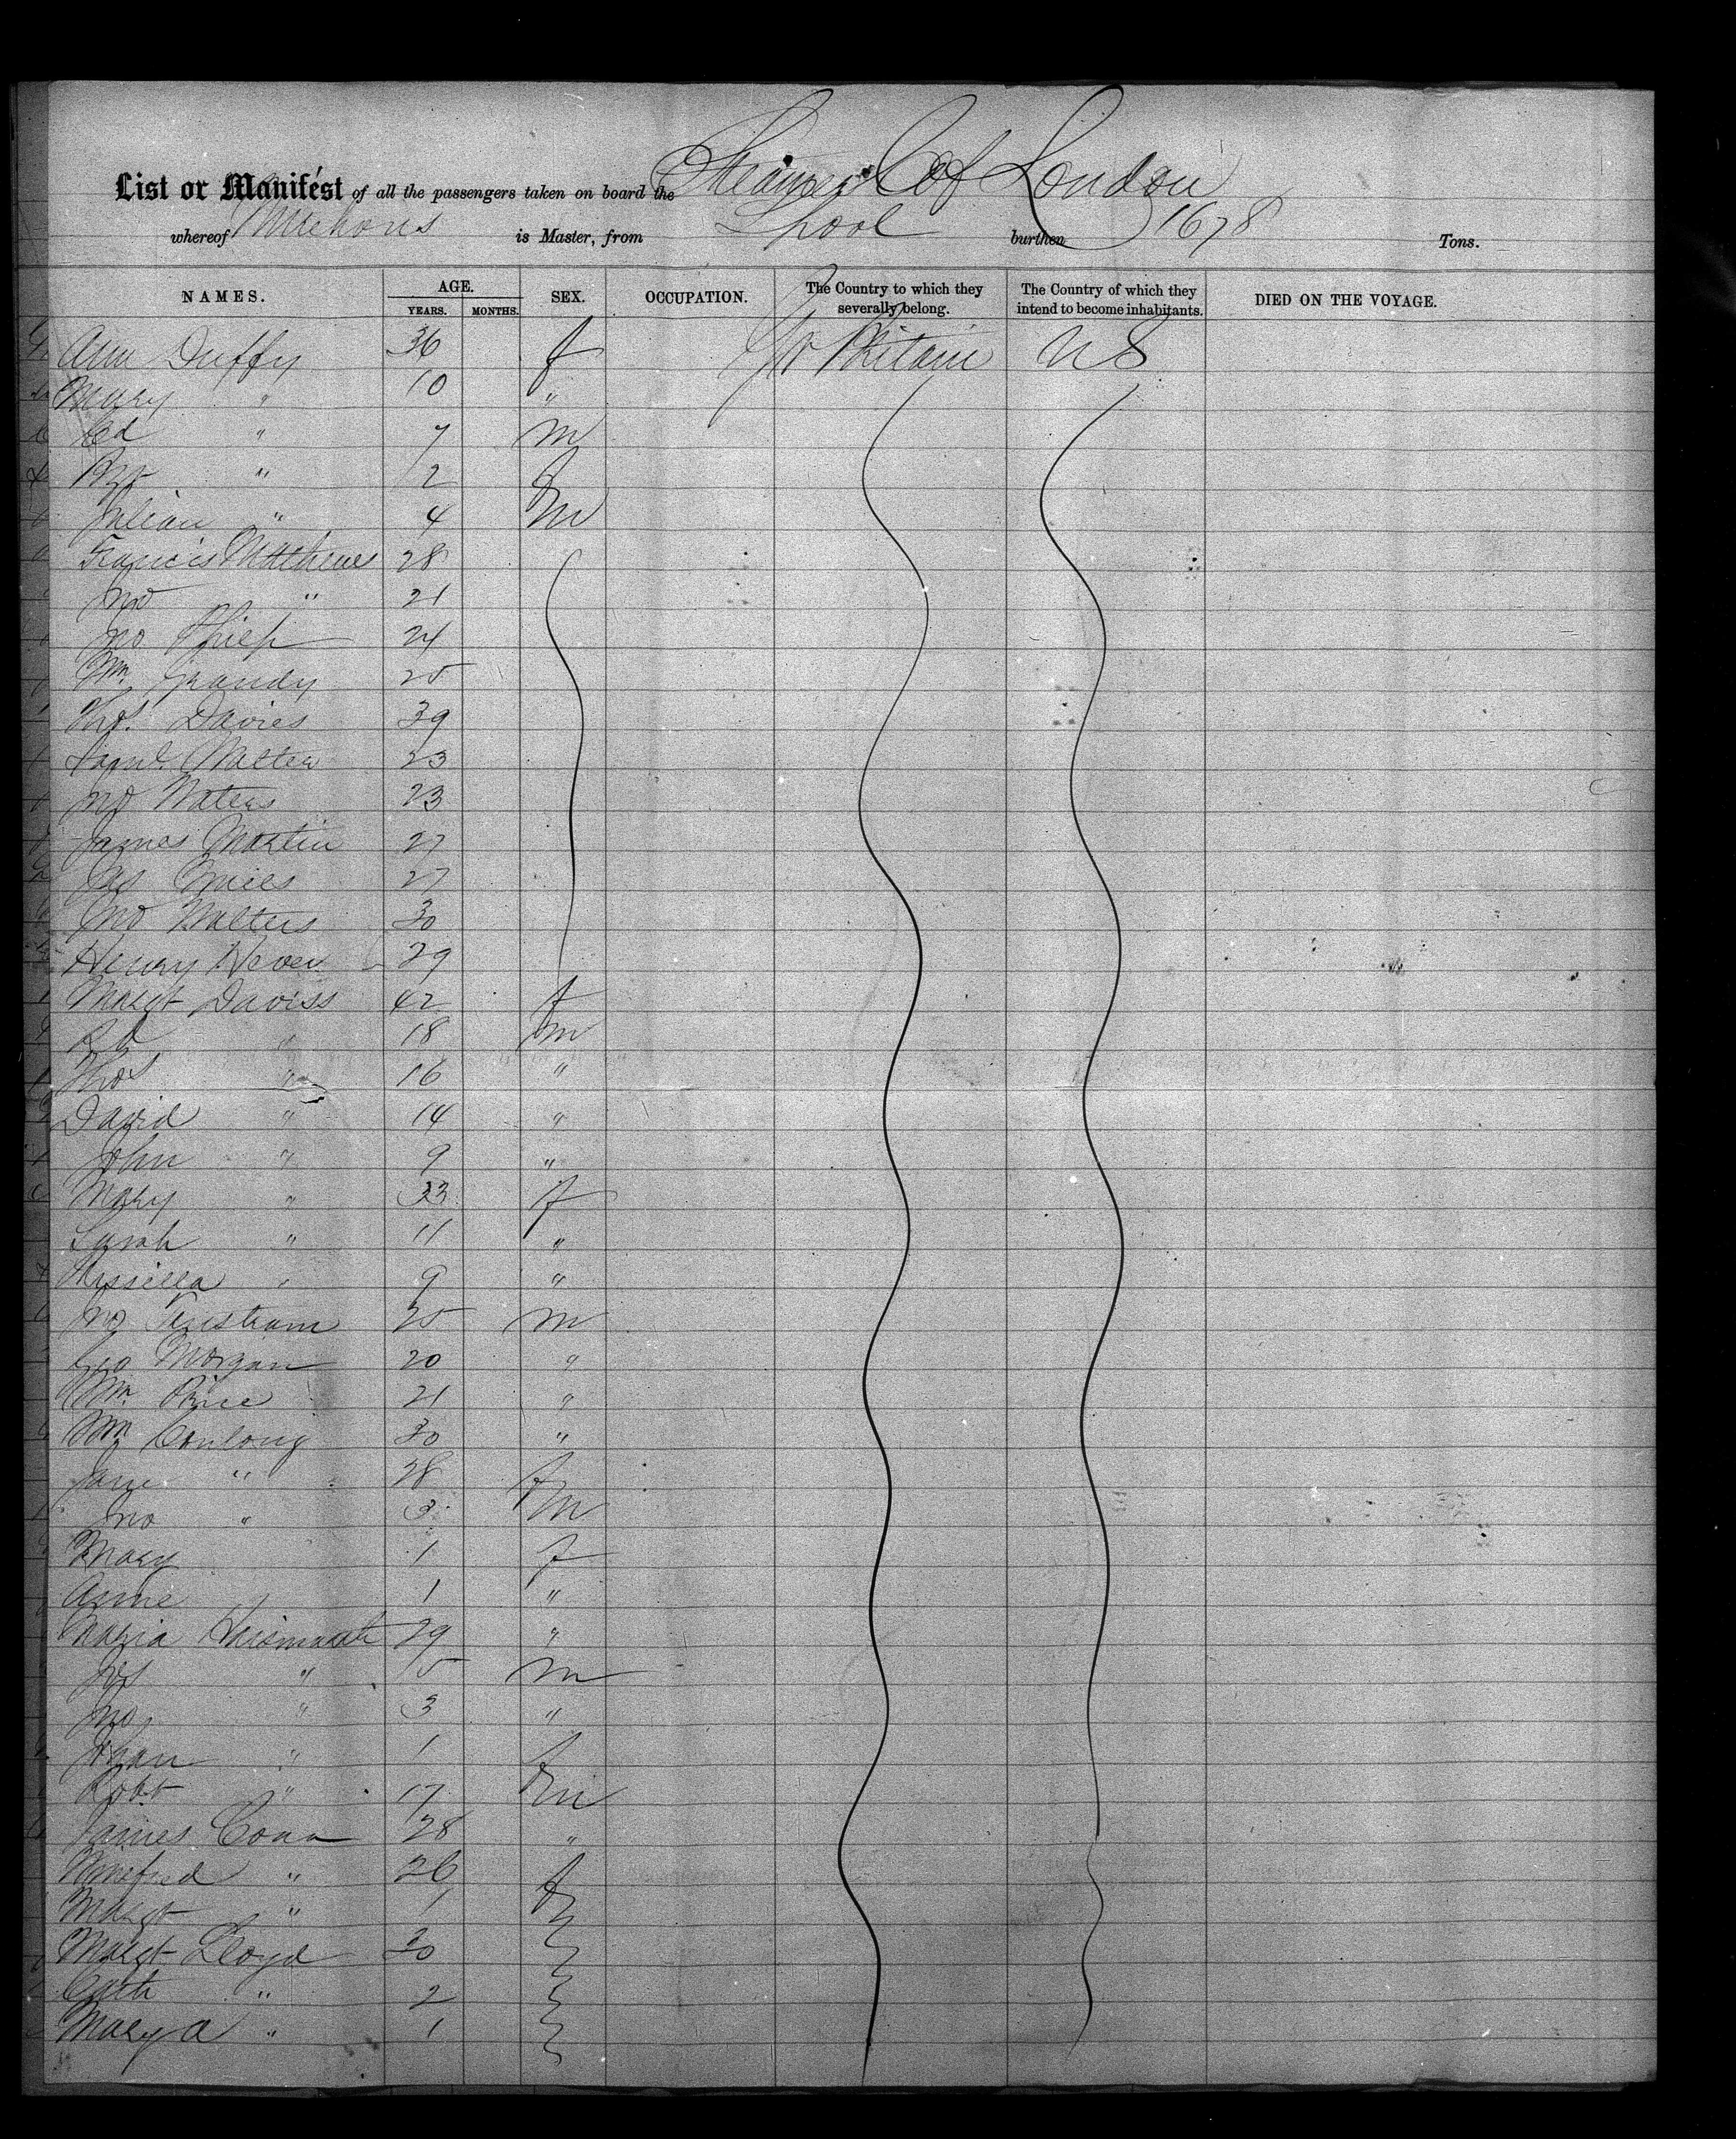 List or Manifest of all the passengers taken on board the Steamer C of London
whereof is Master, from Lpool burthen 1678 Tons.
NAMES. AGE. YEARS. MONTHS. SEX. OCCUPATION. The Country to which they severally belong. The Country of which they intend to become inhabitants. DIED ON THE VOYAGE.
Ann Duffy 36 f Gt Britain U S
Mary " 10 "
" 7 m
" 2 f
Julian " 4 m
Francis Mathews 28
Jno " 21
Jno 24
Wm Grandy 25
Thos. Davies 39
Saml. 23
Jno Waters 23
James Martin 27
27
Jno Walters 30
Henry 29
Margt Daviss 42 f
Rd " 18 m
Thos " 16 "
David " 14 "
John " 9 "
Mary " 33 f
Sarah " 11 "
" 9 "
Jno 25 m
Geo Morgan 20 "
Wm. Price 21 "
Wm 30 "
Jane " 28 f
Jno " 3 m
Mary 1 f
Anne 1 "
Maria 29 "
Jos " 5 m
Jno " 3 "
" 1 f
Robt " 17 m
James 28 "
Winefred " 26 f
Margt " 1
Margt Lloyd 30
Cath " 2
Mary A " 1